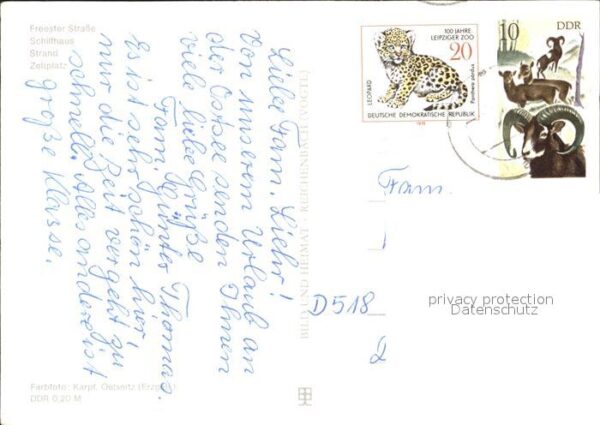 Freester Straße
Schilfhaus
Strand
Zeltplatz
Liebe Fam. Liehr!
Von unserem Urlaub an
der Ostsee senden Ihnen
viele liebe Grüße
Fam. Günter Thomas.
Es ist sehr schön hier,
nur die Zeit vergeht zu
schnell. Alles andere ist
große Klasse.
Farbfoto: Karpf, Oelsnitz (Erzgeb.)
DDR 0,20 M
BILD UND HEIMAT · REICHENBACH (VOGTL)
100 JAHRE
LEIPZIGER ZOO
20
LEOPARD
Panthera pardus
DEUTSCHE DEMOKRATISCHE REPUBLIK
1978
10
DDR
Fam.
D518
2
privacy protection
Datenschutz